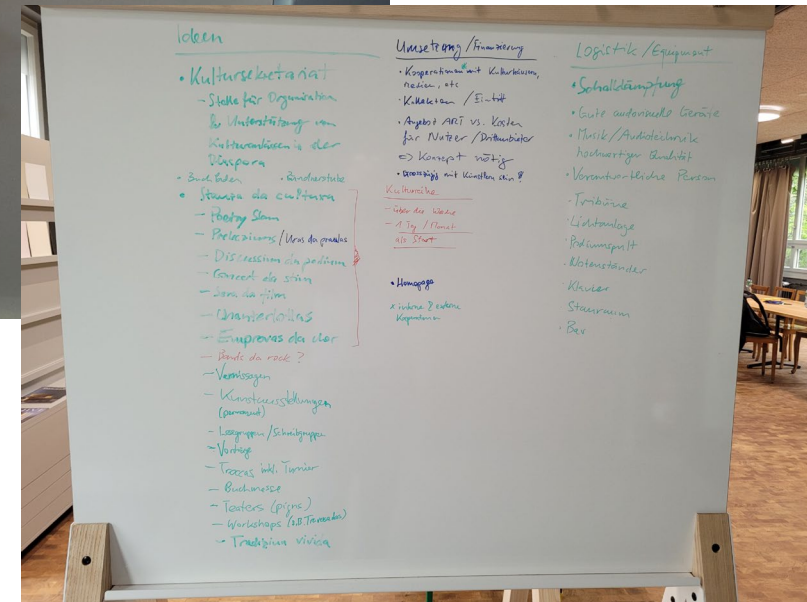 Ideen
• Kultursekretariat
– Stelle für Organisation
& Unterstützung von
in der
Diaspora
• Buchladen
• Stanza da cultura
– Poetry Slam
– Prelecziuns / Uras da praulas
– Discussiun da podium
– Concert da
– Saira da film
– Chantarlottas
– Emprovas da chor
– Bands da rock ?
– Vernissagen
– Kunstausstellungen
(permanent)
– Lesegruppen / Schreibgruppen
– Vorträge
– Troccas inkl. Turnier
– Buchmesse
– Teaters (pigns)
– Workshops (z.B.
– Tradiziun viviva
Umsetzung / Finanzierung
• Kooperationen* mit Kulturhäusern,
medien, etc
• Kollekten / Eintritt
• Angebot ART vs. Kosten
für Nutzer / Drittanbieter
=> Konzept nötig
• mit Künstlern sein !
Kulturreihe
– Unter der Woche
– 1 Tag / Monat
als Start
• Homepage
* interne & externe
Kooperationen
Logistik / Equipment
• Schalldämpfung
• Gute audiovisuelle Geräte
• Musik / Audiotechnik
hochwertiger Qualität
• Verantwortliche Person
• Tribüne
• Lichtanlage
• Podiumspult
• Notenständer
• Klavier
Stauraum
• Bar